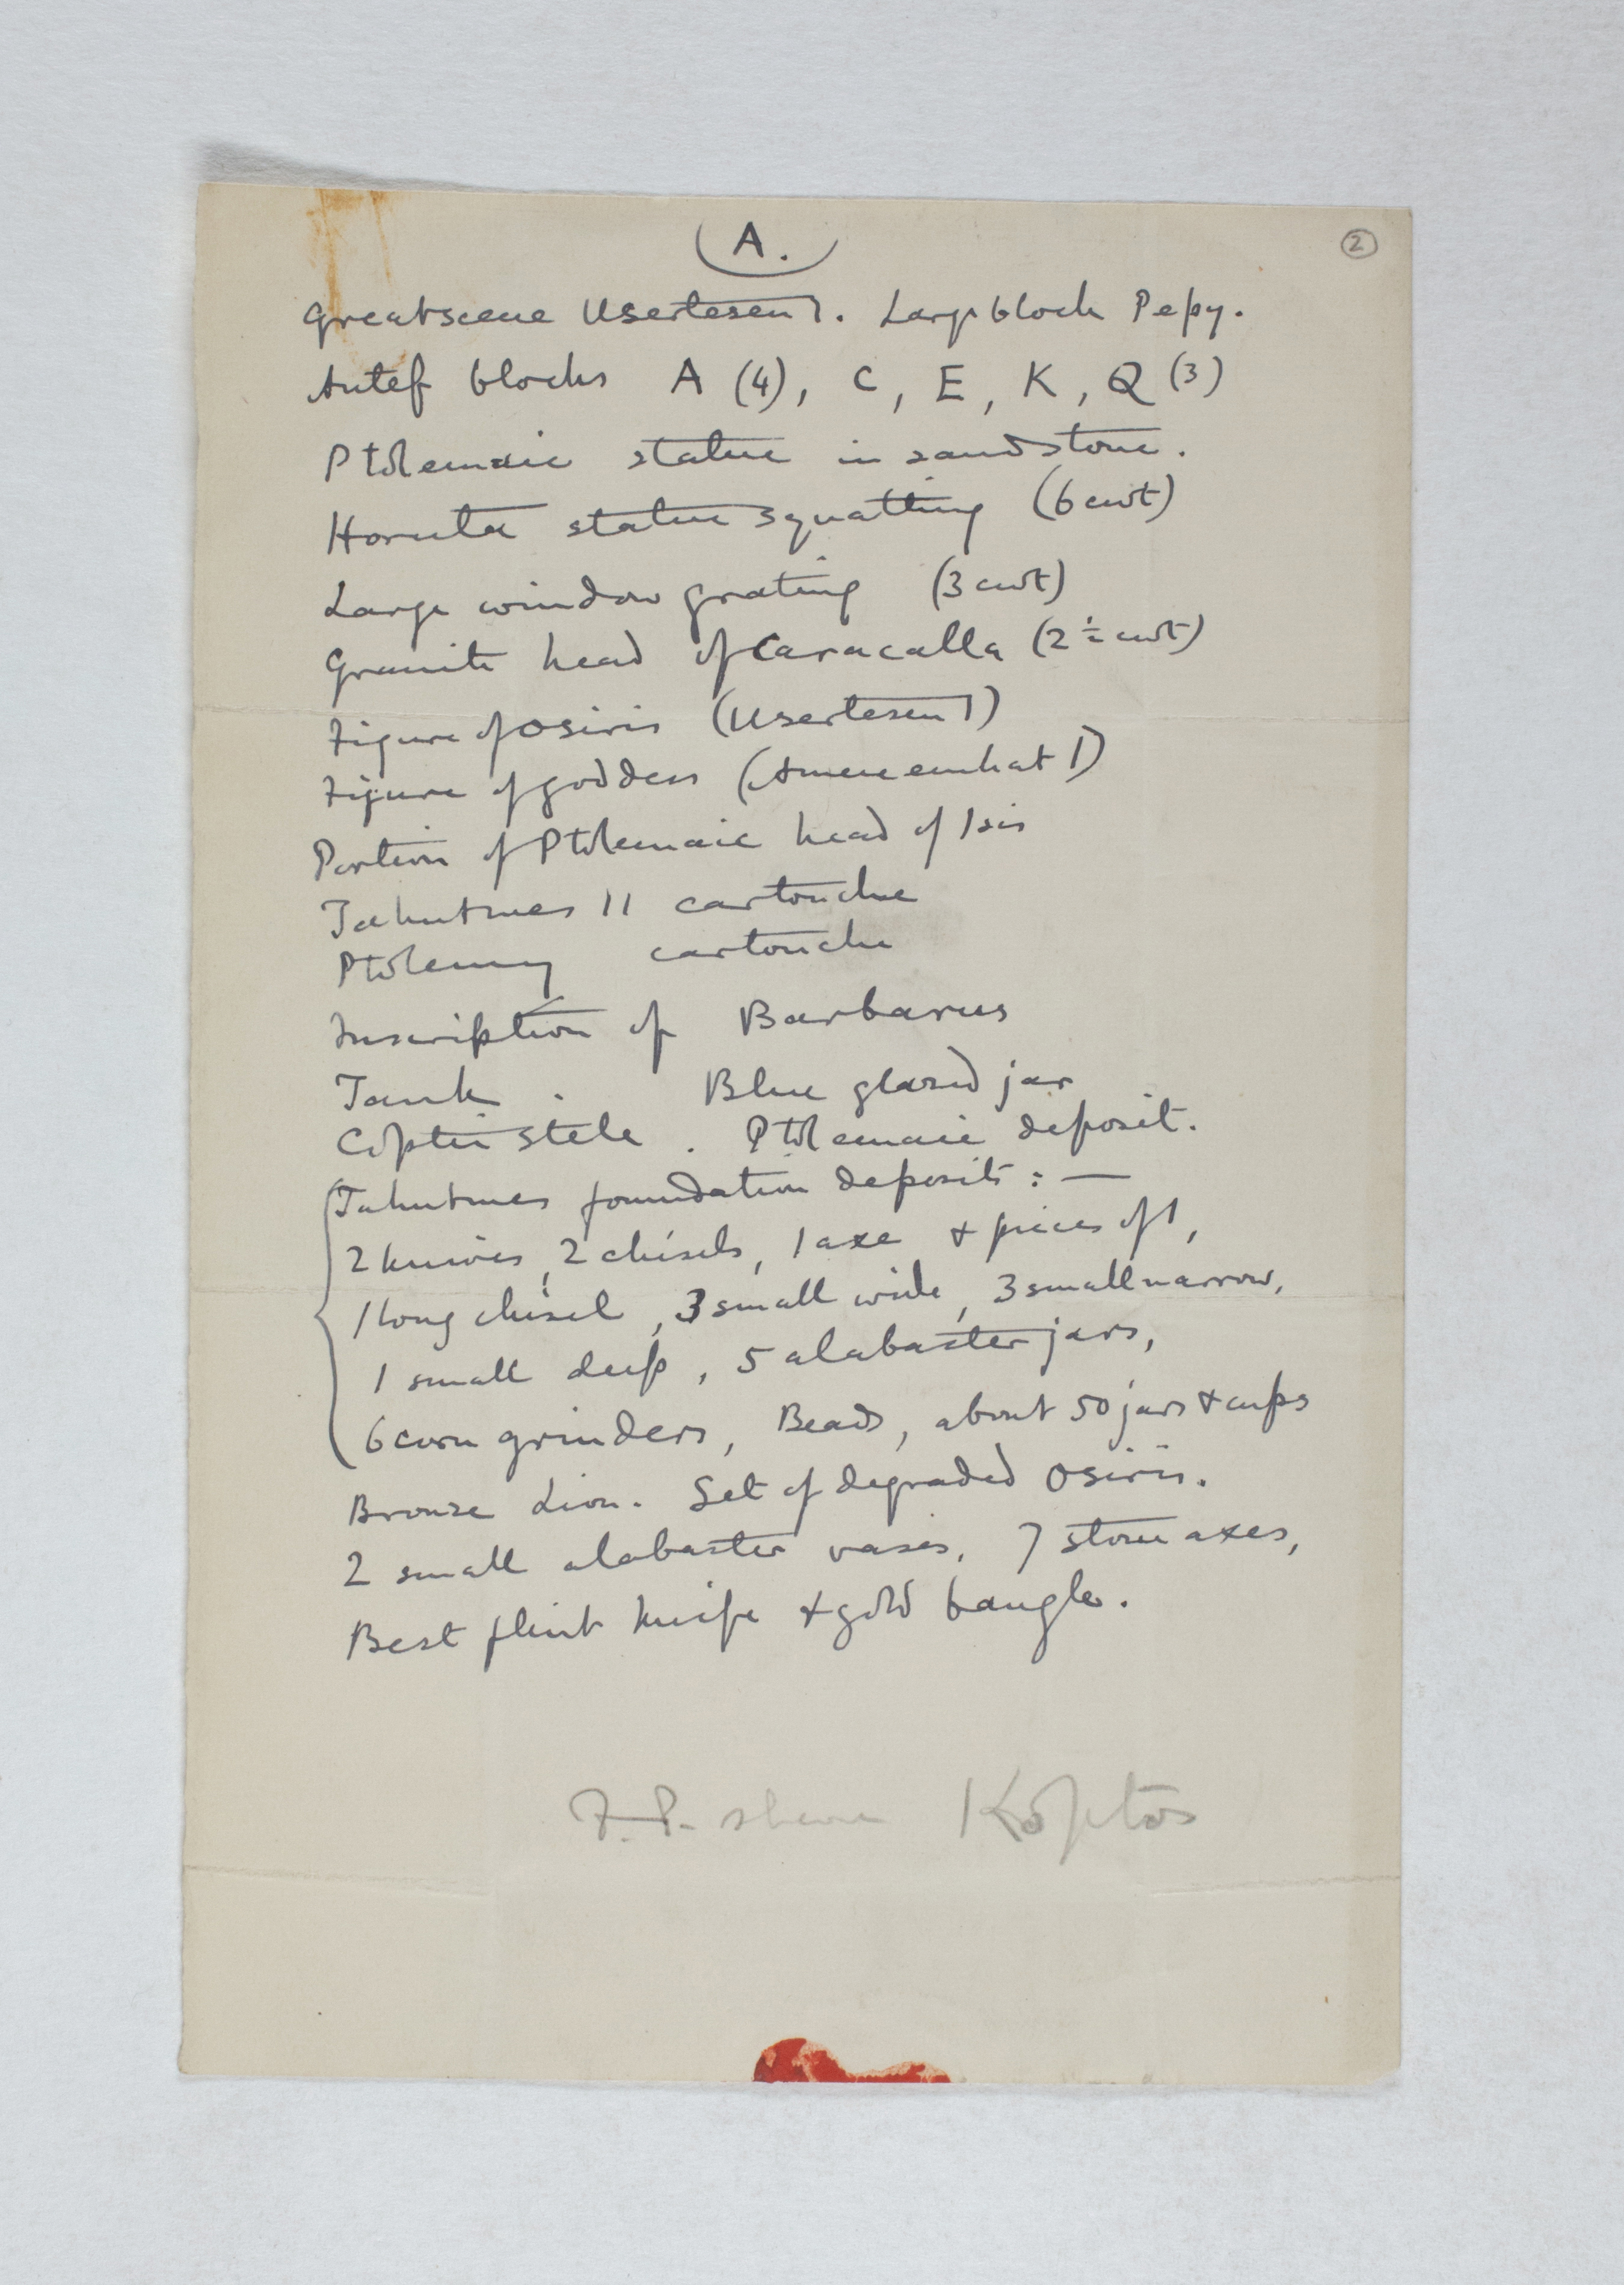 A.
2
Great scene Usertesen I. Large block Pepy.
Antef blocks A (4), C, E, K, Q (3)
Ptolemaic statue in sandstone.
Horuta statue squatting (6 cwt)
Large window grating (3 cwt)
Granite head of Caracalla (2 ½ cwt)
Figure of Osiris (Usertesen I)
Figure of goddess (Amenemhat I)
Portion of Ptolemaic head of Isis
Tahutmes II cartouche
Ptolemy cartouche
Inscription of Barbarus
Tank. Blue glazed jar
Coptic stele. Ptolemaic deposit.
Tahutmes foundation deposits :—
2 knives, 2 chisels, 1 axe & pieces of 1,
1 long chisel, 3 small wide, 3 small narrow,
1 small deep, 5 alabaster jars,
6 corn grinders, Beads, about 50 jars & cups
Bronze Lion. Set of degraded Osiris.
2 small alabaster vases, 7 stone axes,
Best flint knife & gold bangle.
F.P. share Koptos